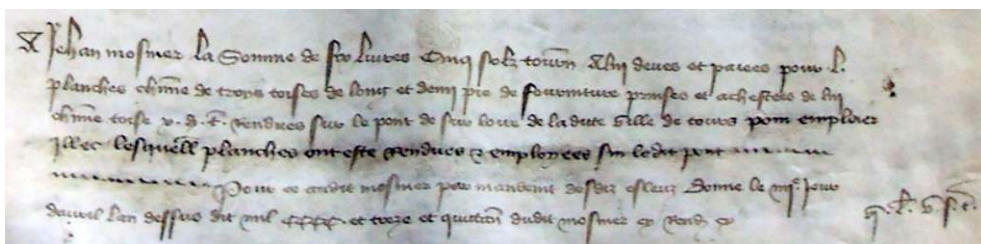 A Jehan mosnier la Somme de livres Cinq solz tourn A lui deues et paiees pour L
planches chune de trois toises de long et demi pie de fourniture prinses et achestees de lui
chune toise v. d. t. Rendues sur le pont de sur loire de ladite ville de tours pour emploier
illec lesquell planches ont este Rendues et emploiees sur ledit pont
Pour ce audit mosnier par mandemt desdiz esleuz donne le jour
davril lan dessus dit mil cccc et treze et quictance dudit mosnier cy Rend cy